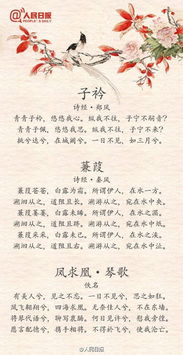 @人民日报
PEOPLE'S DAILY
子衿
诗经·郑风
青青子衿，悠悠我心。纵我不往，子宁不嗣音？
青青子佩，悠悠我思。纵我不往，子宁不来？
挑兮达兮，在城阙兮。一日不见，如三月兮。
蒹葭
诗经·秦风
蒹葭苍苍，白露为霜。所谓伊人，在水一方。
溯洄从之，道阻且长。溯游从之，宛在水中央。
蒹葭萋萋，白露未晞。所谓伊人，在水之湄。
溯洄从之，道阻且跻。溯游从之，宛在水中坻。
蒹葭采采，白露未已。所谓伊人，在水之涘。
溯洄从之，道阻且右。溯游从之，宛在水中沚。
凤求凰·琴歌
佚名
有美人兮，见之不忘。一日不见兮，思之如狂。
凤飞翱翔兮，四海求凰。无奈佳人兮，不在东墙。
将琴代语兮，聊写衷肠。何时见许兮，慰我彷徨。
愿言配德兮，携手相将。不得於飞兮，使我沦亡。
@人民日报